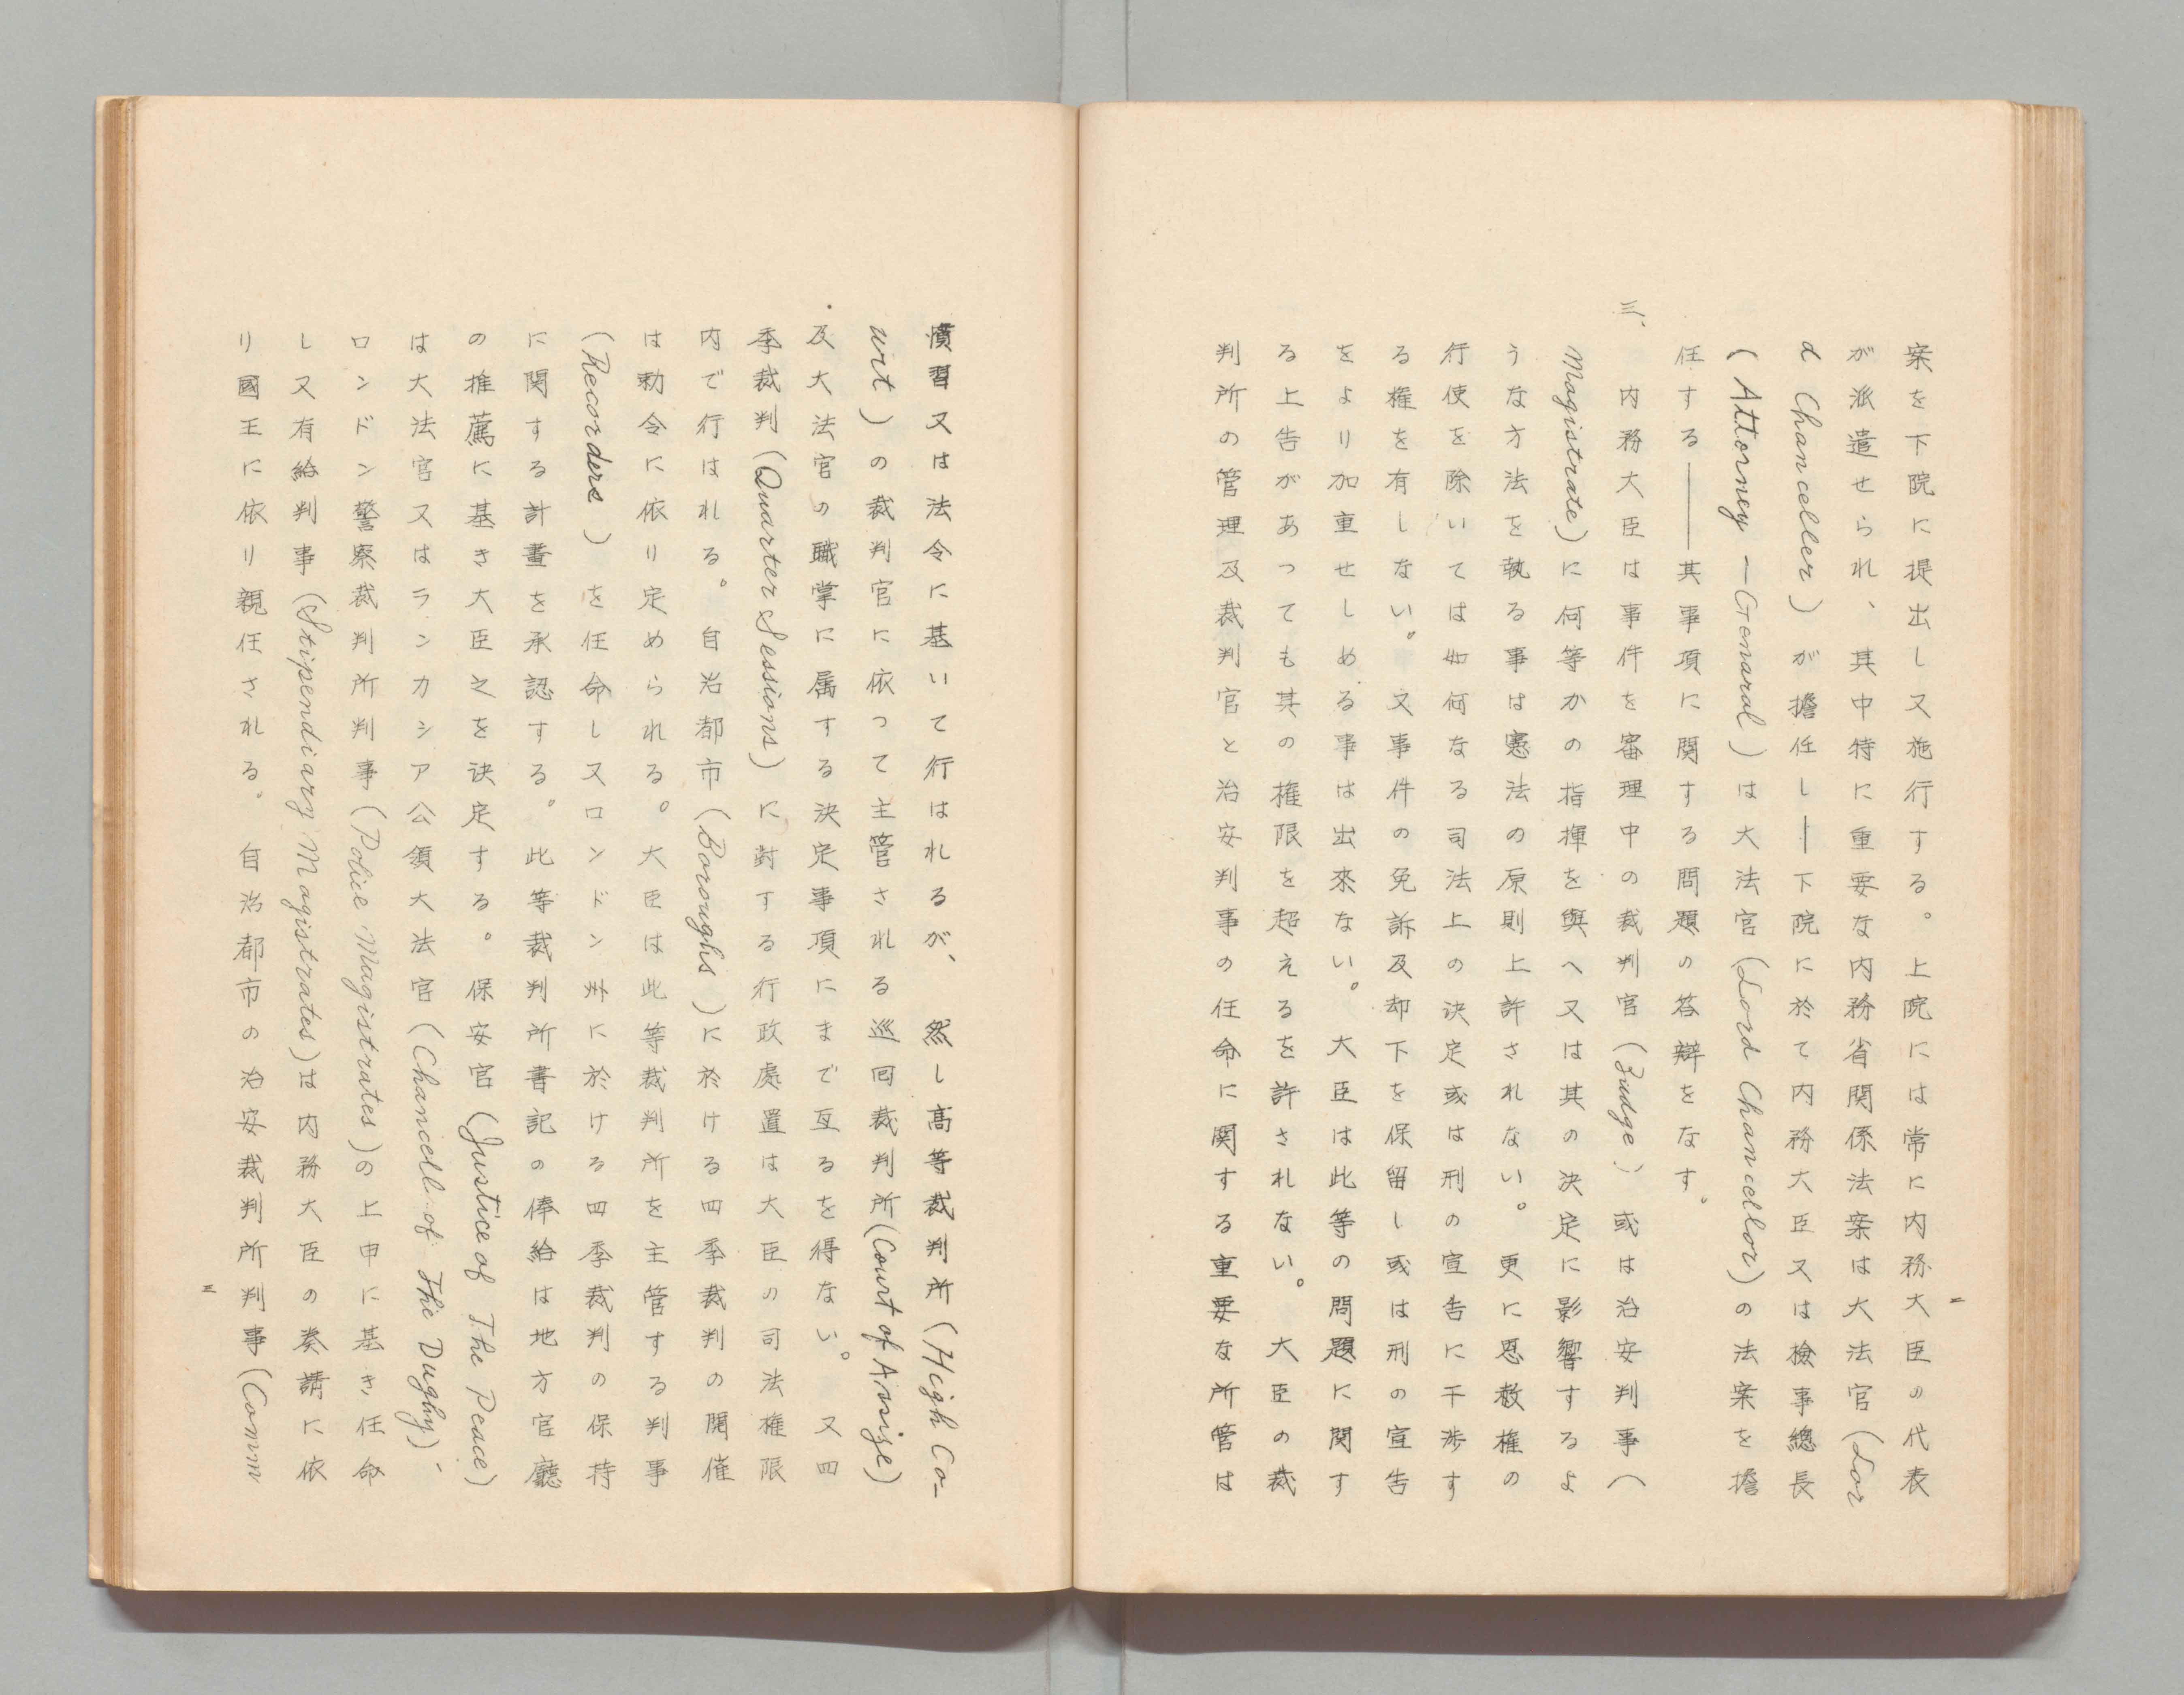 案を下院に提出し又施行する。上院には常に内務大臣の代表
が派遣せられ、其中特に重要な内務省関係法案は大法官(Lor
d Chanceller)が擔任し―下院に於て内務大臣又は檢事總長
(Attorney—Genaral)は大法官(Lord Chancellor)の法案を擔
任する――其事項に関する問題の答辯をなす。
三、内務大臣は事件を審理中の裁判官(Judge)或は治安判事(
Magistrate)に何等かの指揮を與へ又は其の決定に影響するよ
うな方法を執る事は憲法の原則上許されない。更に恩赦権の
行使を除いては如何なる司法上の決定或は刑の宣告に干渉す
る権を有しない。又事件の免訴及却下を保留し或は刑の宣告
をより加重せしめる事は出來ない。大臣は此等の問題に関す
る上告があっても其の権限を超えるを許されない。大臣の裁
判所の管理及裁判官と治安判事の任命に関する重要な所管は
二
慣習又は法令に基いて行はれるが、然し高等裁判所(High Co-
urt)の裁判官に依って主管される巡回裁判所(Court of Assize)
及大法官の職掌に属する決定事項にまで亙るを得ない。又四
季裁判(Quarter Sessions)に対する行政處置は大臣の司法権限
内で行はれる。自治都市(Boroughs)に於ける四季裁判の開催
は勅令に依り定められる。大臣は此等裁判所を主管する判事
(Recorders)を任命し又ロンドン州に於ける四季裁判の保持
に関する計畫を承認する。此等裁判所書記の俸給は地方官廳
の推薦に基き大臣之を決定する。保安官(Justice of The Peace)
は大法官又はランカシア公領大法官(Chancell of The Dughy)、
ロンドン警察裁判所判事(Police Magistrates)の上申に基き任命
し又有給判事(Stipendiary Magistrates)は内務大臣の奏請に依
り國王に依り親任される。自治都市の治安裁判所判事(Comm
三